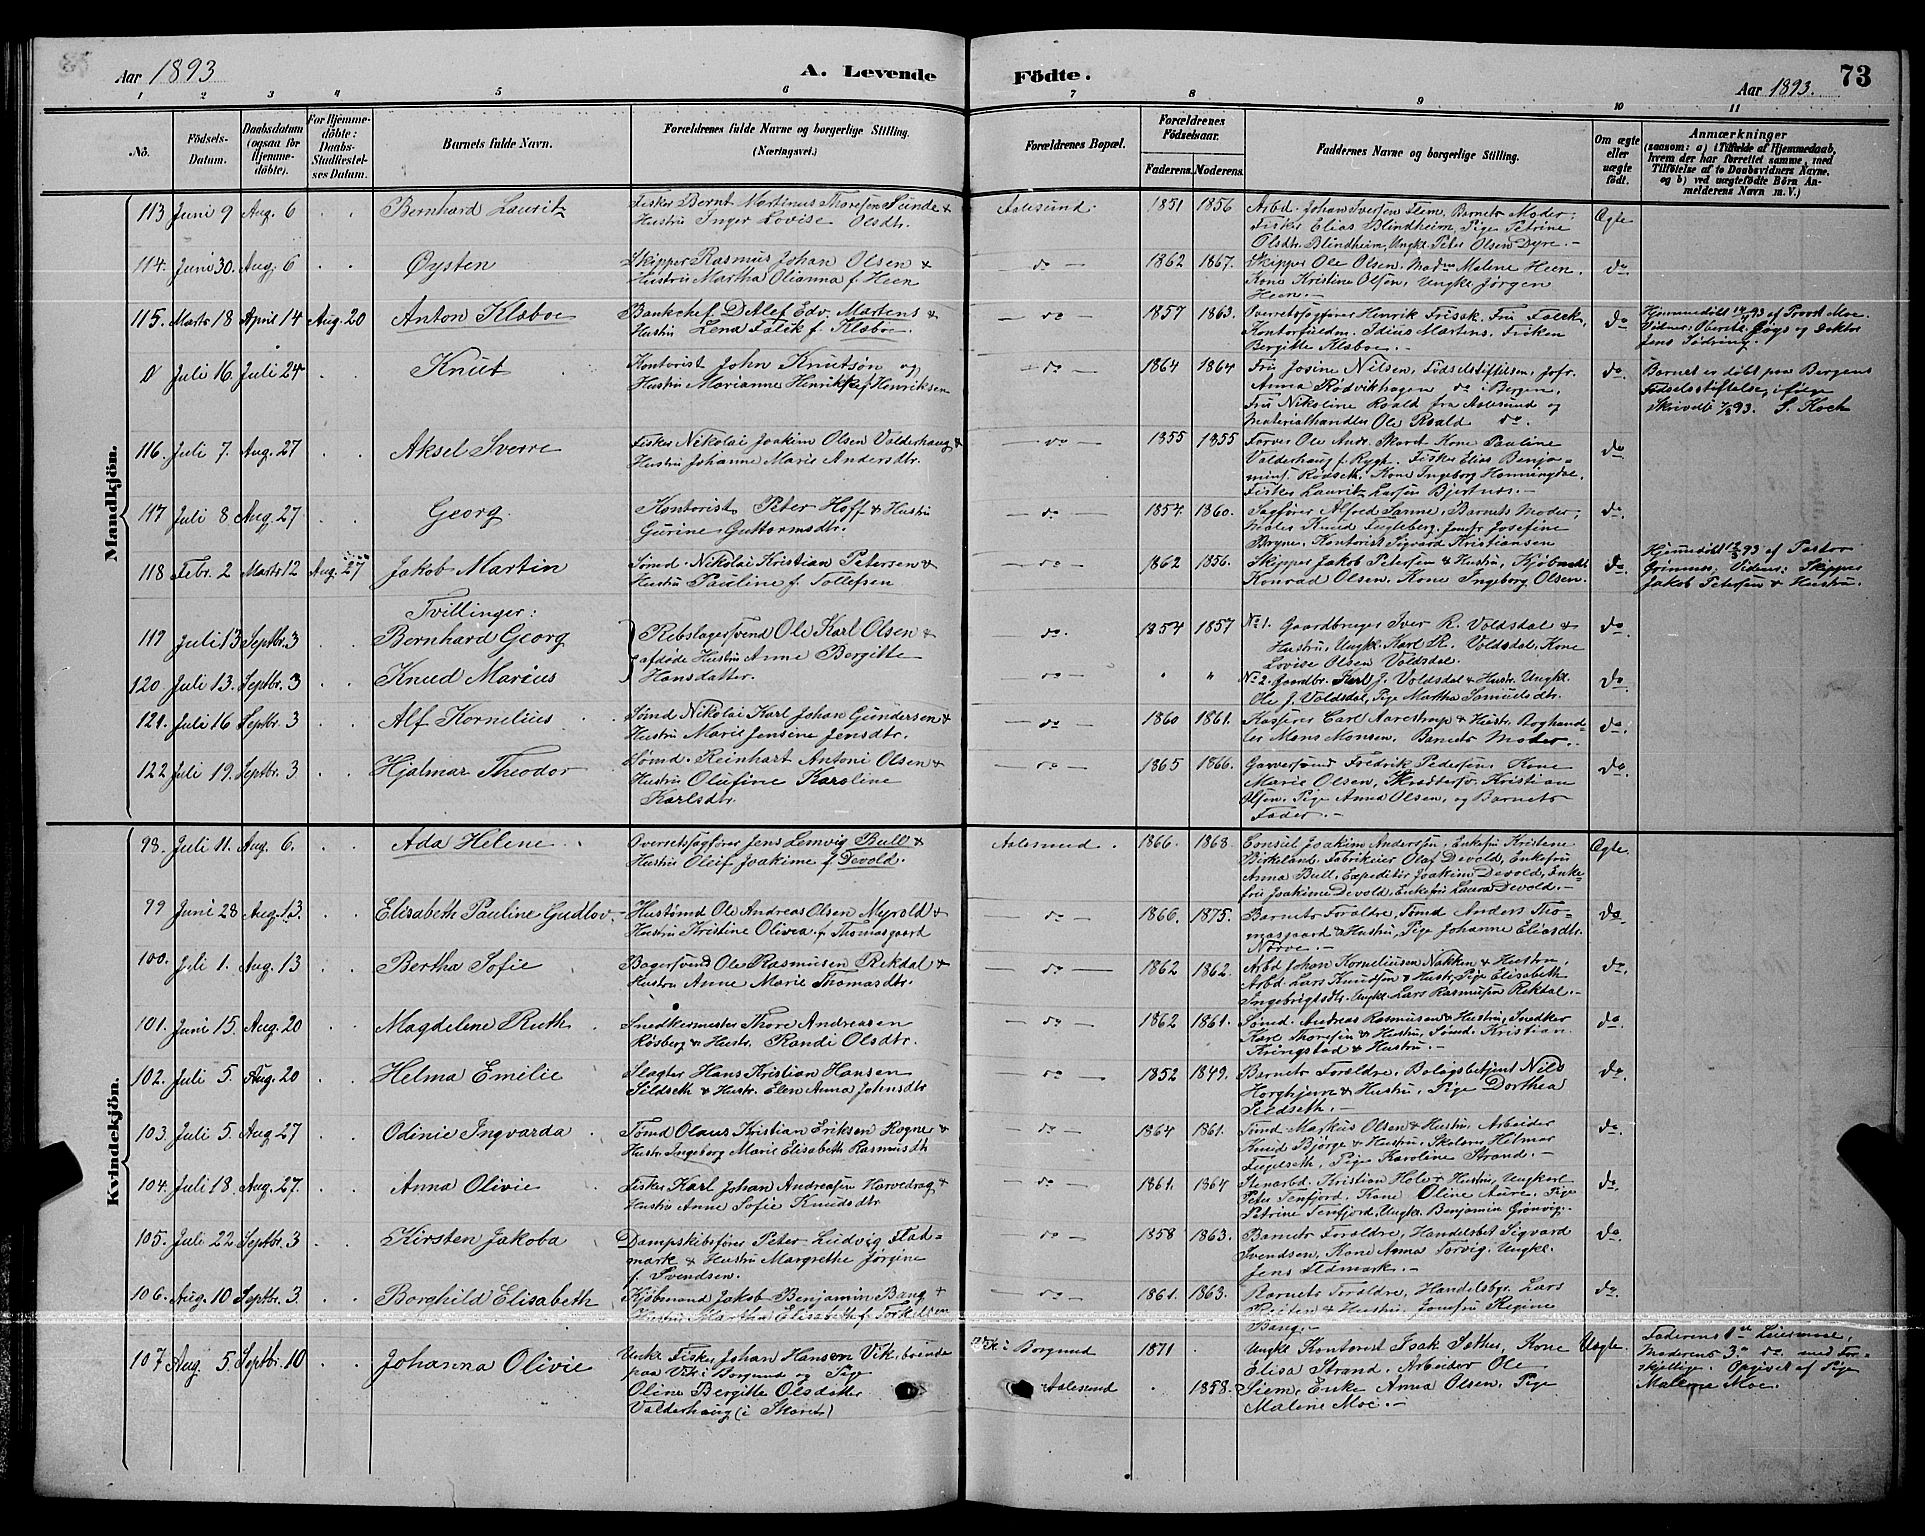 Aar 1893
A. Levende
Födte.
73
Aar 1893.
1 2 3 4 5 6 7 8 9 10 11
No.
Födsels-
Datum.
Daabsdatum
(ogsaa for
Hjemme-
döbte).
For Hjemme-
döbte:
Daabs-
Stadfæstel-
ses Datum.
Barnets fulde Navn.
Forældrenes fulde Navne og borgerlige Stilling.
(Næringsvei.)
Forældrenes Bopæl.
Forældrenes
Födselsaar.
Faderens. Moderens.
Faddernes Navne og borgerlige Stilling.
Om ægte
eller
uægte
födt.
Anmærkninger
(saasom: a) i Tilfælde af Hjemmedaab,
hvem der har forrettet samme, med
Tilföielse af to Daabsvidners Navne,
og b) ved uægtefödte Börn An-
melderens Navn m. V.)
Mandkjön.
113 Juni 9 Aug. 6 Bernhard Lauritz
Fisker Bernt Martinus Thoresen Sunde &
Hustru Inger Lovise Olsdtr.
Aalesund. 1851 1856
Arbd. Johan Iversen Flem, Barnets Moder,
Fisker Elias Blindheim, Pige Petrine
Olsdtr. Blindheim, Ungk. Peter Olsen Dyre.
Ægte
114. Juni 30. Aug. 6 Øysten
Skipper Rasmus Johan Olsen &
Hustru Martha Olianna f. Heen
do 1862 1867.
Skipper Ole Olsen, Malene Heen,
Kone Kristine Olsen, Ungk. Jørgen
Heen.
do
115. Marts 18 April 14 Aug. 20 Anton Klæboe
Bankchef Detlef Edv. Martens &
Hustru Lena Falck f. Klæboe.
do 1857 1863.
Overretssagfører Henrik Friis, Fru Falck,
Martens, Frøken
Bergitte Klæboe.
do
Hjemmedøbt 14/4 93 af Provst Moe.
Vidner: og Doktor
Jens
0 Juli 16 Juli 24 Knut
Kontorist John Knutsøn og
Hustru Marianne f. Henriksen
do 1864 1864
Fru Josine Nilsen, Fødselsstiftelsen, Jofr.
Anna Rødvikhagen do i Bergen,
Fru Nikoline Roald fra Aalesund og
Materialhandler Ole Roald do.
do.
Barnet er døbt paa Bergens
Fødselsstiftelse, ifølge
Skrivelse 7/8 93. S. Koch
116. Juli 7. Aug. 27 Aksel Sverre
Fisker Nikolai Joakim Olsen Valderhaug &
Hustru Johanne Marie Andersdtr.
do 1855 1855
Farver Ole Andr. Skaret, Kone Pauline
Valderhaug f. Rygh, Fisker Elias Benja-
mins. Rødseth, Kone Ingeborg Honningdal,
Fisker Lauritz Larsen Bjertnes.
do
117 Juli 8 Aug. 27 Georg.
Kontorist Peter Hoff & Hustru
Gurine Guttormsdtr.
do 1854. 1860.
Sagfører Alfred Sanne, Barnets Moder,
Maler Knud Fugleberg, Jomfr. Josefine
Bryne, Kontorist Sigvard Kristiansen
do.
118 Febr. 2 Marts 12 Aug. 27 Jakob Martin
Sømd. Nikolai Kristian Petersen &
Hustru Pauline f. Tollefsen
do 1862 1856.
Skipper Jakob Petersen & Hustru, Kjøbmd.
Konrad Olsen, Kone Ingeborg Olsen.
do.
Hjemmedøbt 12/3 93 af Pastor
Grimnes. Vidner: Skipper
Jakob Petersen & Hustru.
Tvillinger:
119 Juli 13 Septbr. 3 Bernhard Georg
Rebslagersvend Ole Karl Olsen &
afdøde Hustru Anne Bergitte
Hansdatter.
do. 1854 1857
No 1. Gaardbruger Iver R. Voldsdal &
Hustru, Ungk. Karl R. Voldsdal, Kone
Lovise Olsen Voldsdal.
do
120 Juli 13. Septbr. 3 Knud Marius
do " "
No 2. Gaardbr. Karl J. Voldsdal & Hustr. Ungk.
Ole J. Voldsdal, Pige Martha Samuelsdtr.
do
121. Juli 16 Septbr. 3 Alf Kornelius
Sømd Nikolai Karl Johan Gundersen &
Hustru Marie Jensine Jensdtr.
do 1860 1861.
Kasserer Carl Aarestrup & Hustr. Boghand-
ler Mons Monsen, Barnets Moder.
do.
122 Juli 19. Septbr. 3 Hjalmar Theodor
Sømd. Reinhart Antoni Olsen &
Hustru Olufine Karoline
Karlsdtr.
do 1865 1866.
Garversvend Fredrik Pedersen, Kone
Marie Olsen, Kristian
Olsen, Pige Anna Olsen, og Barnets
Fader.
do
Kvindekjön.
98. Juli 11. Aug. 6. Ada Helene
Overretssagfører Jens Lemvig Bull &
Hustru Oleif Joakime f. Devold.
Aalesund. 1866. 1868.
Consul Joakim Andersen, Enkefru Kristine
Birkeland, Fabrikeier Olaf Devold, Enkefru
Anna Bull, Expeditør Joakim Devold, Enke-
fru Joakime Devold, Enkefru Laura Devold.
Ægte.
99 Juni 28 Aug. 13. Elisabeth Pauline Gudlov
Hustømd Ole Andreas Olsen Myrold &
Hustru Kristine Olivia f. Thomasgaard
do 1866. 1875.
Barnets Forældre, Tømd Anders Tho-
masgaard & Hustru, Pige Johanne Eliasdtr.
Nørve.
do
100. Juli 1. Aug. 13 Bertha Sofie
Bagersvend Ole Rasmusen Rekdal &
Hustru Anne Marie Thomasdtr.
do 1862 1862.
Arbd Johan Korneliusen Nakken & Hustru,
Arbd. Lars Knudsen & Hustr, Pige Elisabeth
Ingebrigtsdtr. Ungk. Lars Rasmusen Rekdal.
do.
101. Juni 15. Aug. 20 Magdelene Ruth
Snedkermester Thore Andreasen
Røsberg & Hustr. Randi Olsdtr.
do 1862 1861.
Sømd. Andreas Rasmusen & Hustru, Snedker
Karl Thoresen & Hustru, Sømd. Kristian
Kringstad & Hustru.
do
102. Juli 5. Aug. 20 Helma Emilie
Slagter Hans Kristian Hansen
Sildseth & Hustr. Elen Anna Johnsdtr
do 1852 1849.
Barnets Forældre, Bolagsbetjent Nils
Horghjem & Hustru, Pige Dorthea
Sildseth.
do.
103. Juli 5. Aug 27 Odinie Ingvarda
Tømd Olaus Kristian Eriksen Rogne &
Hustr. Ingeborg Marie Elisabeth Rasmusdtr
do 1864 1861.
Tømd Markus Olsen & Hustru, Arbeider
Knud Bjørge & Hustru, Skolær. Hilmar
Fuglseth, Pige Karoline Strand.
do
104. Juli 18. Aug. 27. Anna Olivie
Fisker Karl Johan Andreasen Harvedrag &
Hustru Anne Sofie Knudsdtr
do 1861. 1864
Stenarbd. Kristian Holer Hustru, Ungkarl
Peter Tenfjord, Kone Oline Aure, Pige
Petrine Tenfjord, Ungk. Benjamin Grønvig.
do
105. Juli 22 Septbr. 3 Kirsten Jakoba
Dampskibsfører Peter Ludvig Flad-
mark & Hustru Margrethe Jørgine
f. Svendsen.
do 1858 1863.
Barnets Forældre, Handelsbet Sigvard
Svendsen, Kone Anna Torvig, Ungk.
Jens Fladmark.
do
106. Aug. 10 Septbr. 3. Borghild Elisabeth
Kjøbmand Jakob Benjamin Bang &
Hustru Martha Elisabeth f.
do 1861. 1863.
Barnets Forældre, Handelsbgr. Lars
Reiten & Hustru, Jomfru Regine
Bang.
do.
107 Aug. 5 Septbr. 10 Johanna Olivie
Ungk. Fisker Johan Hansen Vik, boende
paa Vik i Borgund og Pige
Oline Bergitte Olsdatter
Valderhaug (i Skaret)
Vik i Borgund 1871
Aalesund 1858.
Ungk. Kontorist Isak Sather, Kone
Elisa Strand, Arbeider Ole
Siem, Enke Anna Olsen, Pige
Malene Moe.
Uægte.
Faderens 1ste Leiermaal,
Moderens 3die do med For-
skjellige. Opgivet af Pige
Malene Moe.